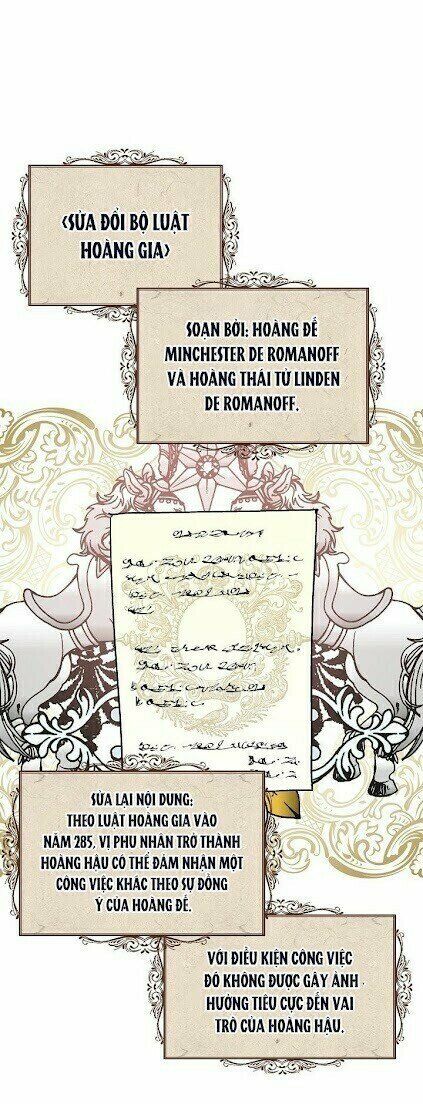 <SỬA ĐỔI BỘ LUẬT
HOÀNG GIA>
SOẠN BỞI: HOÀNG ĐẾ
MINCHESTER DE ROMANOFF
VÀ HOÀNG THÁI TỬ LINDEN
DE ROMANOFF.
SỬA LẠI NỘI DUNG:
THEO LUẬT HOÀNG GIA VÀO
NĂM 285, VỊ PHU NHÂN TRỞ THÀNH
HOÀNG HẬU CÓ THỂ ĐẢM NHẬN MỘT
CÔNG VIỆC KHÁC THEO SỰ ĐỒNG
Ý CỦA HOÀNG ĐẾ.
VỚI ĐIỀU KIỆN CÔNG VIỆC
ĐÓ KHÔNG ĐƯỢC GÂY ẢNH
HƯỞNG TIÊU CỰC ĐẾN VAI
TRÒ CỦA HOÀNG HẬU.